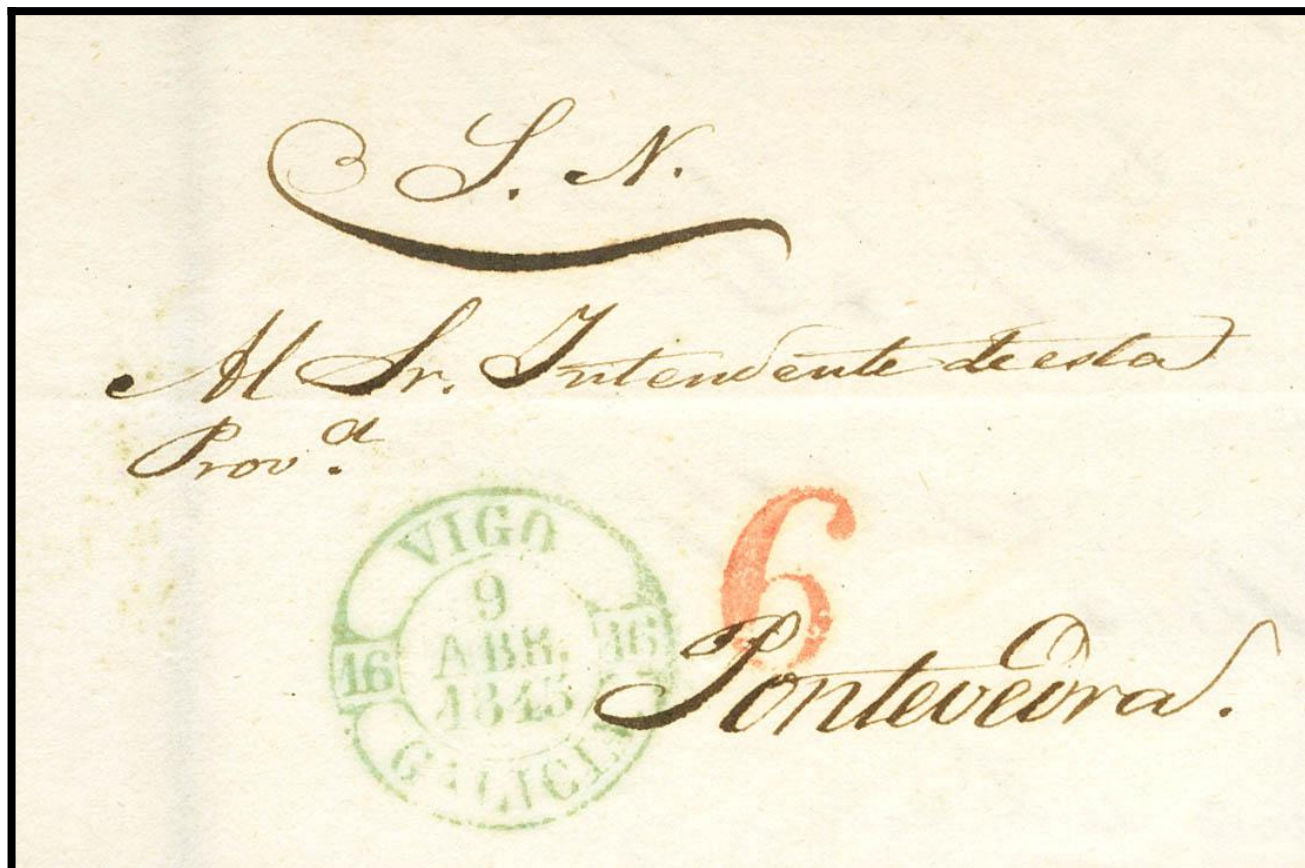 S. N.
Al Sr. Intendente de esta
Prov.a
6
VIGO
9
ABR.
1845
16
16
GALICIA
Pontevedra.